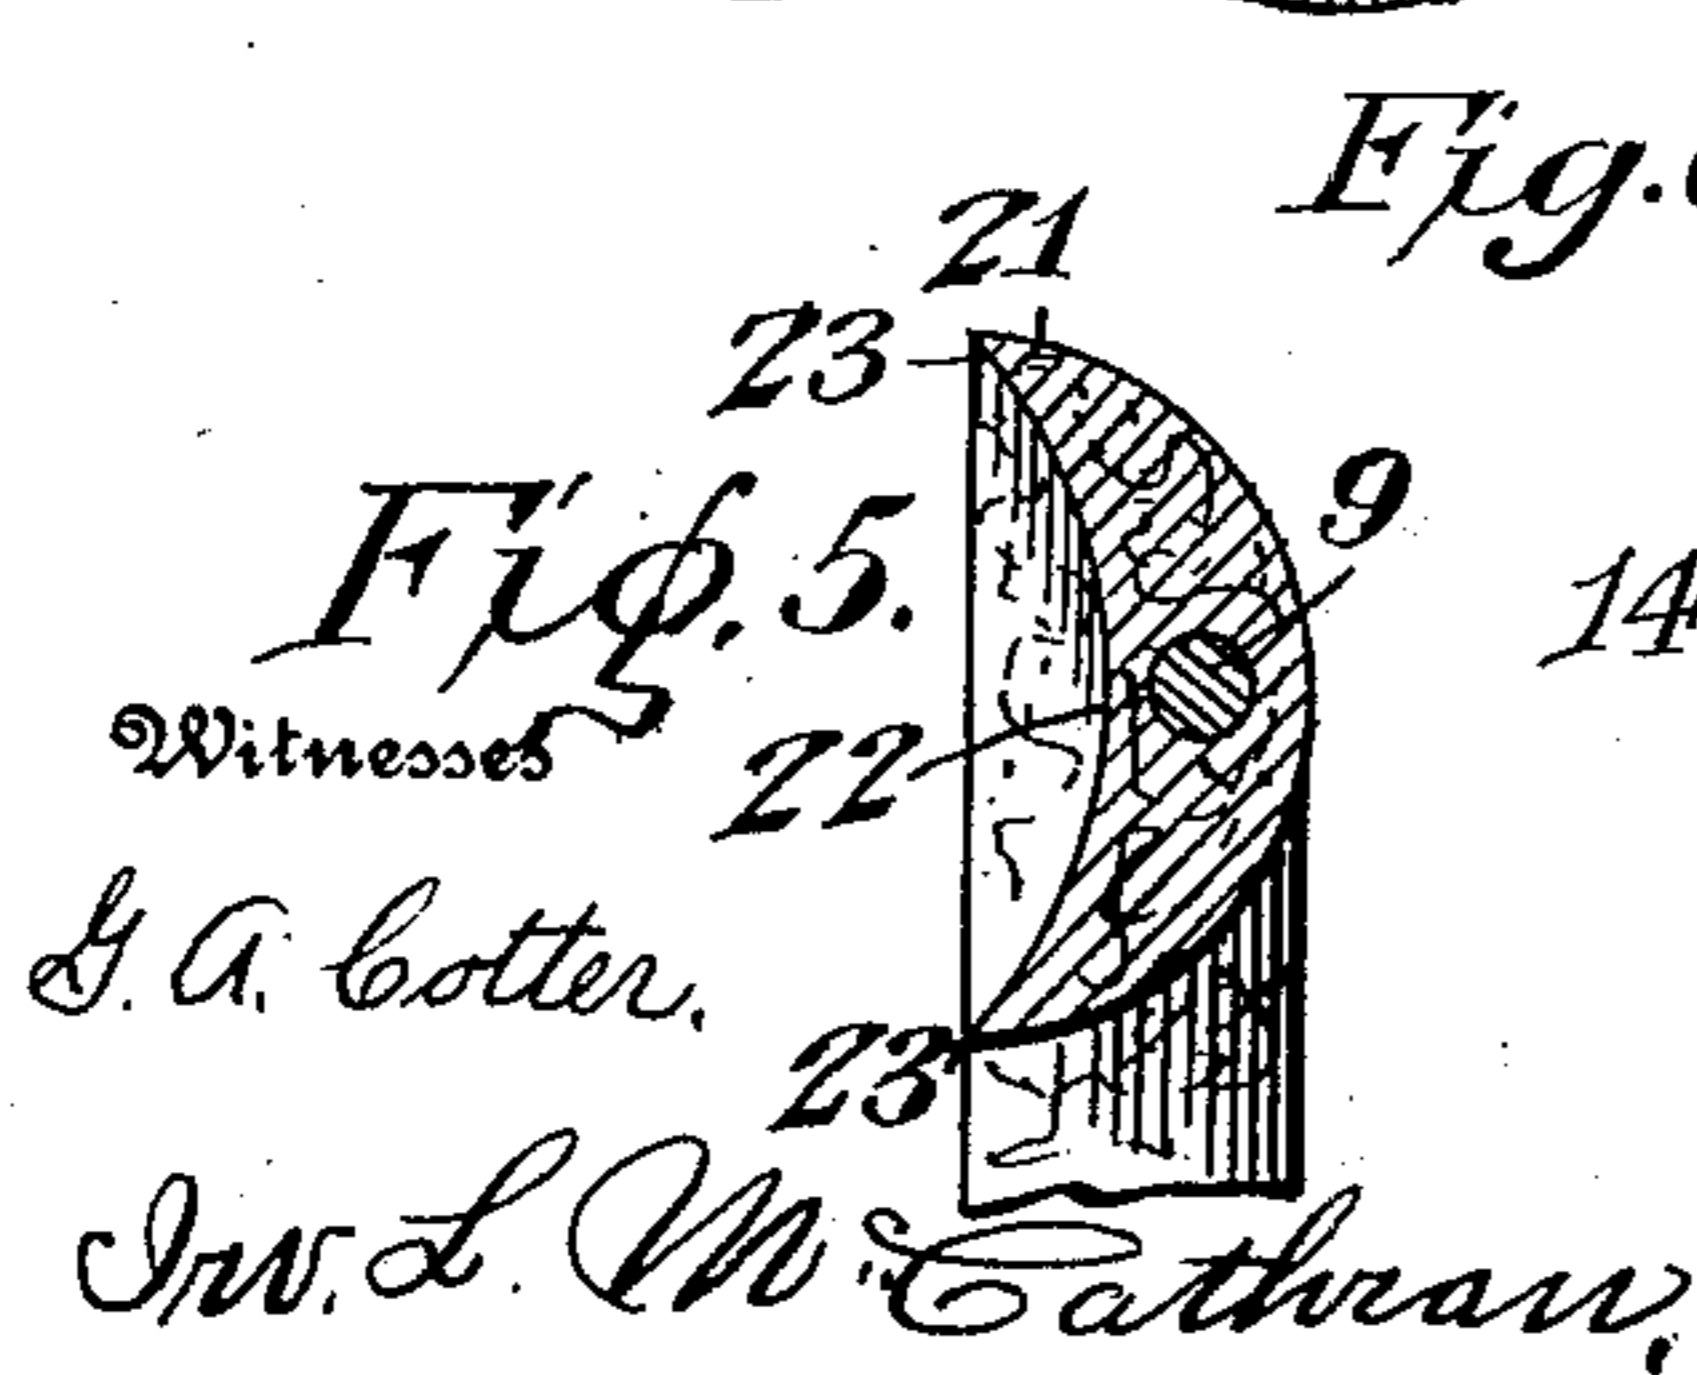 Fig.
21
23
9
Fig. 5.
14
22
Witnesses
G. A. Cotter.
23
Irv. L. McCathran.